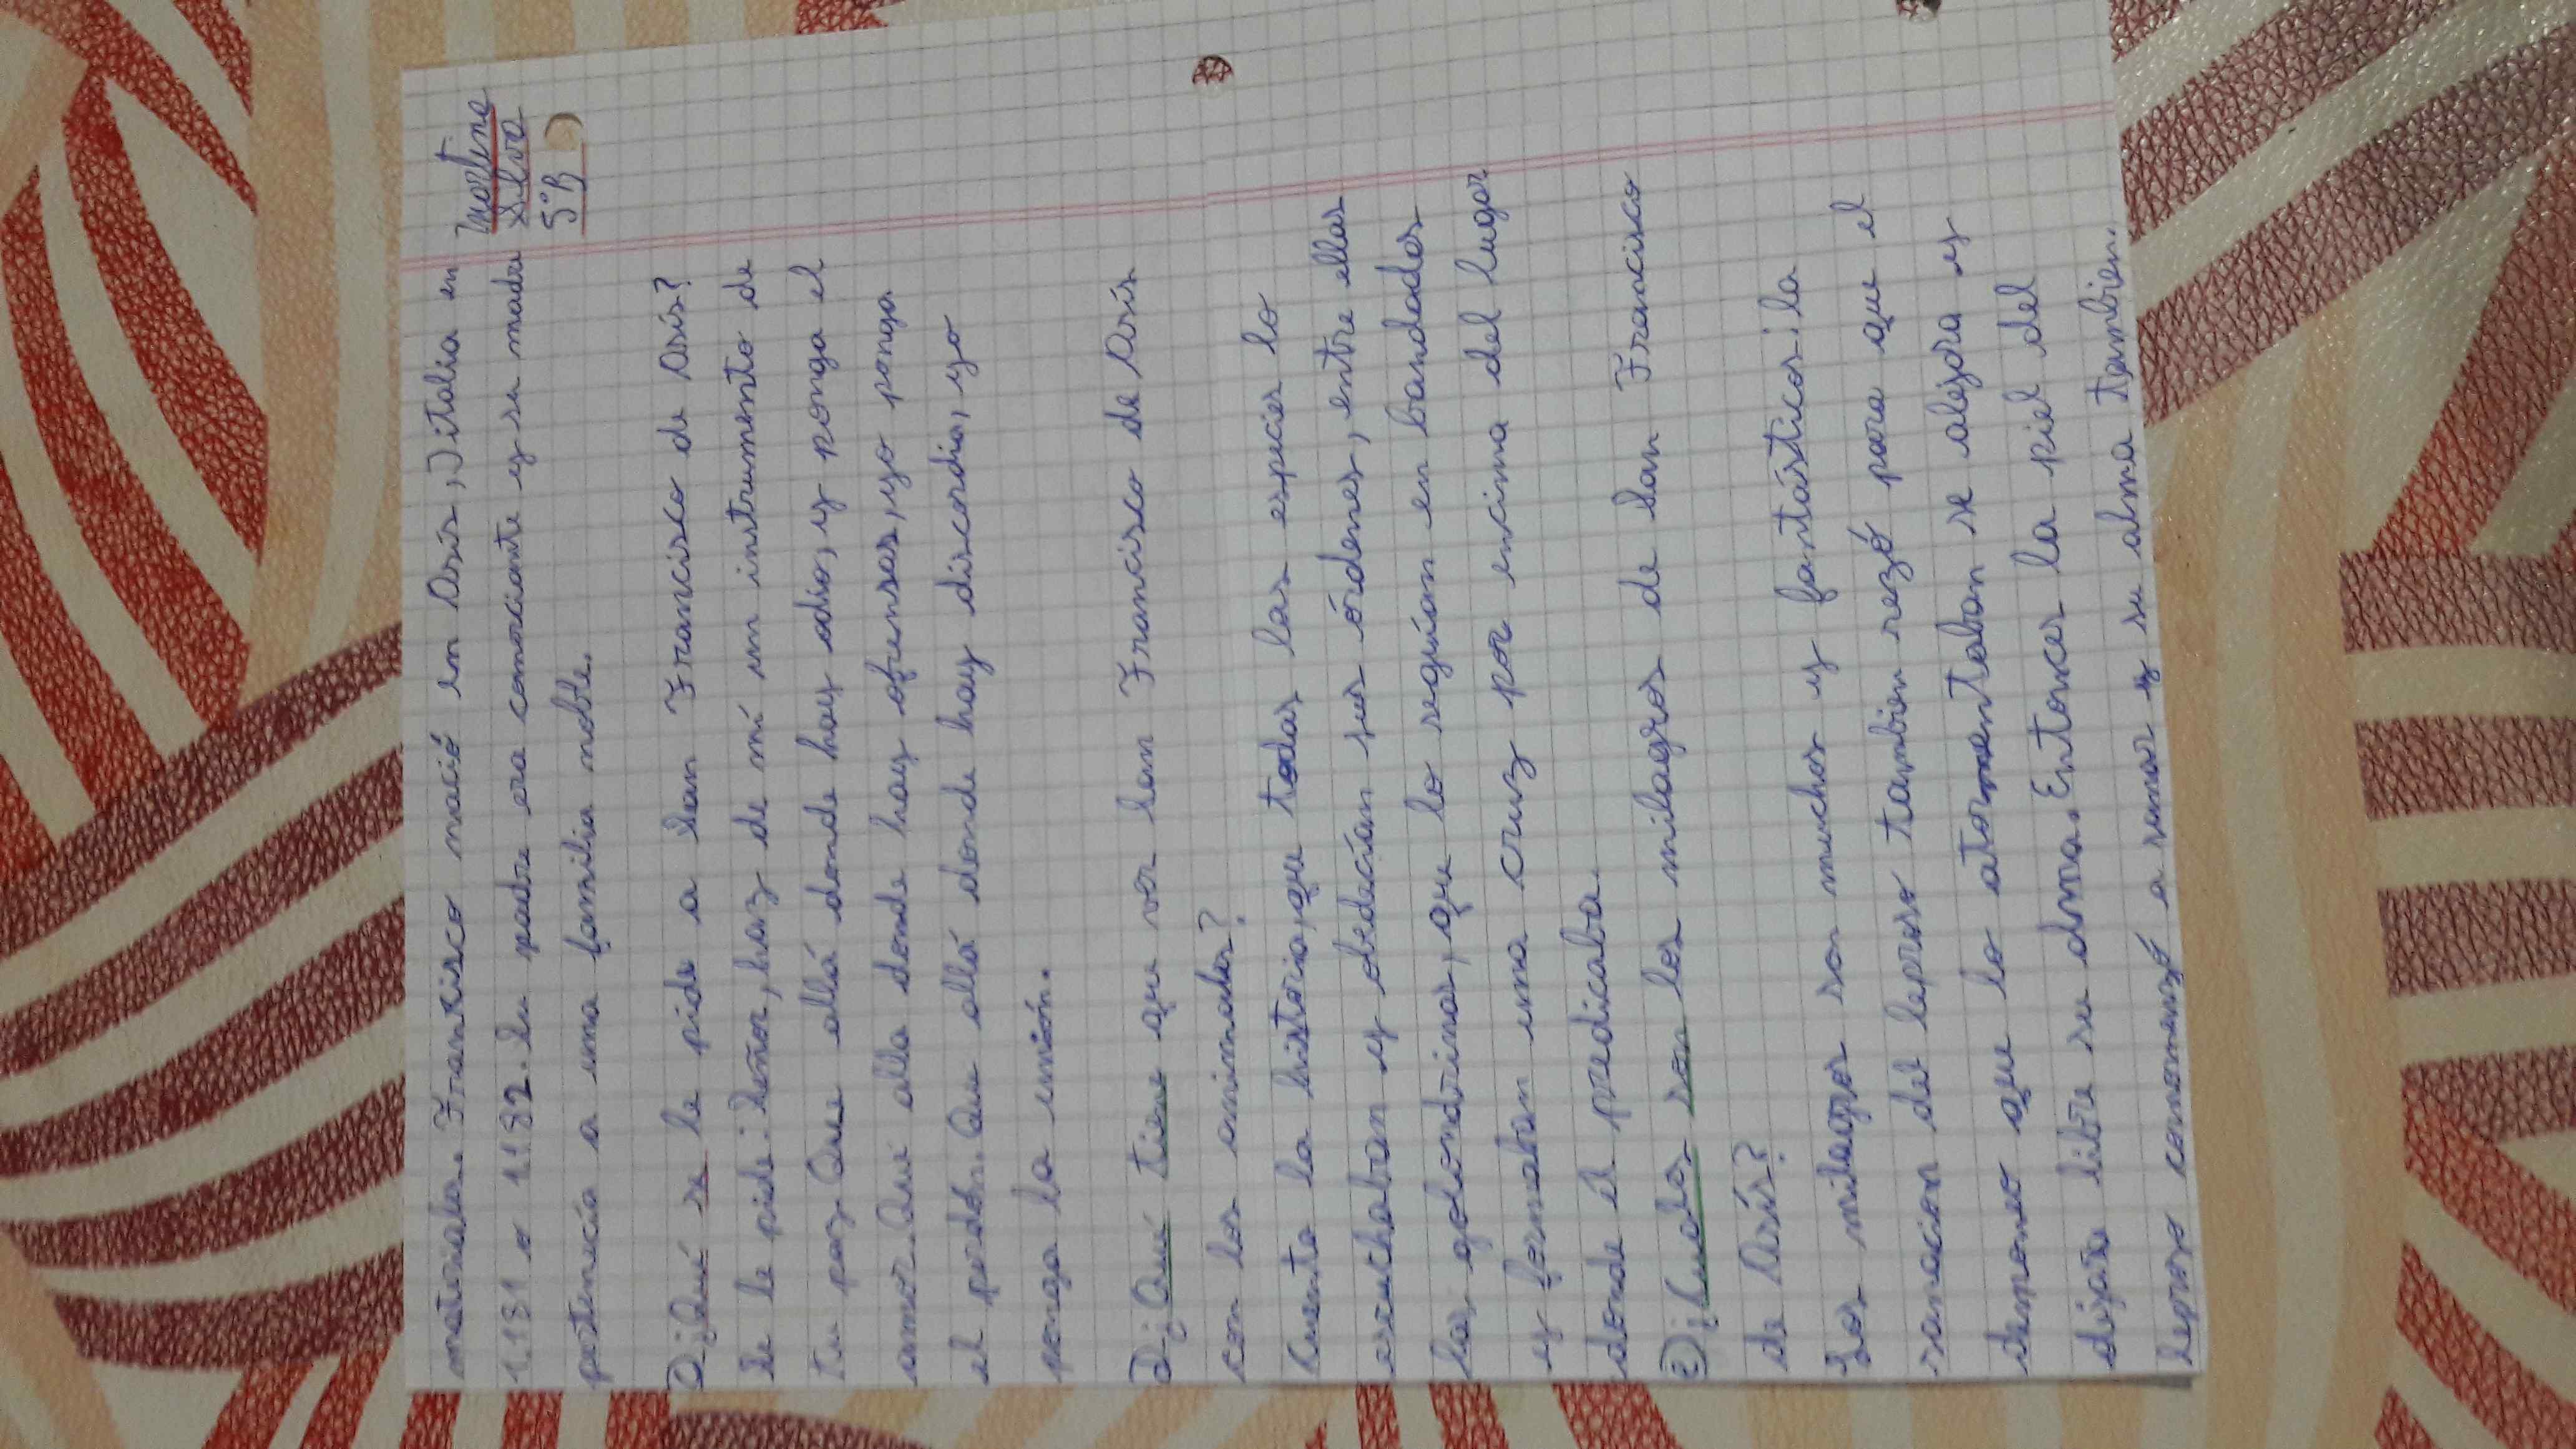 Morlene
Silva
5°B
materiales. Francisco nació en Asís, Italia en
1.181 o 1182. Su padre era comerciante y su madre
pertenecía a una familia noble.
¿Qué se le pide a San Francisco de Asís?
Se le pide: Señor, haz de mí un instrumento de
tu paz. Que allá donde hay odio, y ponga el
amor. Que allá donde hay ofensas, yo ponga
el perdón. Que allá donde hay discordia, yo
ponga la unión.
¿Qué tiene que ver San Francisco de Asís
con los animales?
Cuenta la historia, que todas las especies lo
escuchaban y obedecían sus órdenes, entre ellas
las golondrinas, que lo seguían en bandadas
y formaban una cruz por encima del lugar
donde él predicaba.
¿Cuales son los milagros de San Francisco
de Asís?
Los milagros son muchos y fantásticos: la
sanacion del leproso tambien rezó para que el
demoneo que lo atormentaban se alejara y
dejara libre su alma. Entonces la piel del
leproso comomenzó a sanar y su alma tambien.